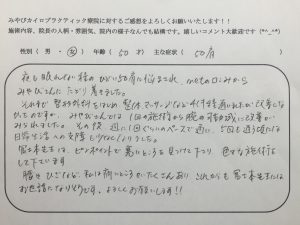 みやびカイロプラクティック療院に対するご感想をよろしくお願いいたします!!
施術内容、院長の人柄・雰囲気、院内の様子などなんでも結構です。嬉しいコメント大歓迎です(*^_^*)
性別( 男・女 ) 年齢( 50歳 ) 主な症状( 50肩 )
夜も眠れない程のひどい50肩に悩まされ、netの口コミから
みやびさんにたどり着きました。
それまで整形外科をはじめ、整体、マッサージなど4件を通いましたが改善しな
かったのですが、みやびさんでは1回の施術から腕の稼動域に改善が
みられました。その後、週に1回ぐらいのペースで通い、5回も通う頃には
日常生活への支障もなくなりました。
富士本先生は、ピンポイントで悪いところを見つけて下さり、色々な施術を
して下さいます
腰とひざなど、私は痛いところがたくさんあり、これからも富士本先生には
お世話になりそうです。よろしくお願いします!!